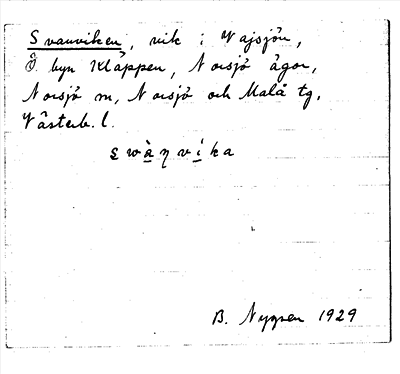 Svanviken, vik i Vajsjön,
Ö byn Kläppen, Norsjö ägor,
Norsjö sn, Norsjö och Malå tg.
Västerb. l.
swànvíka
B. Nygren 1929